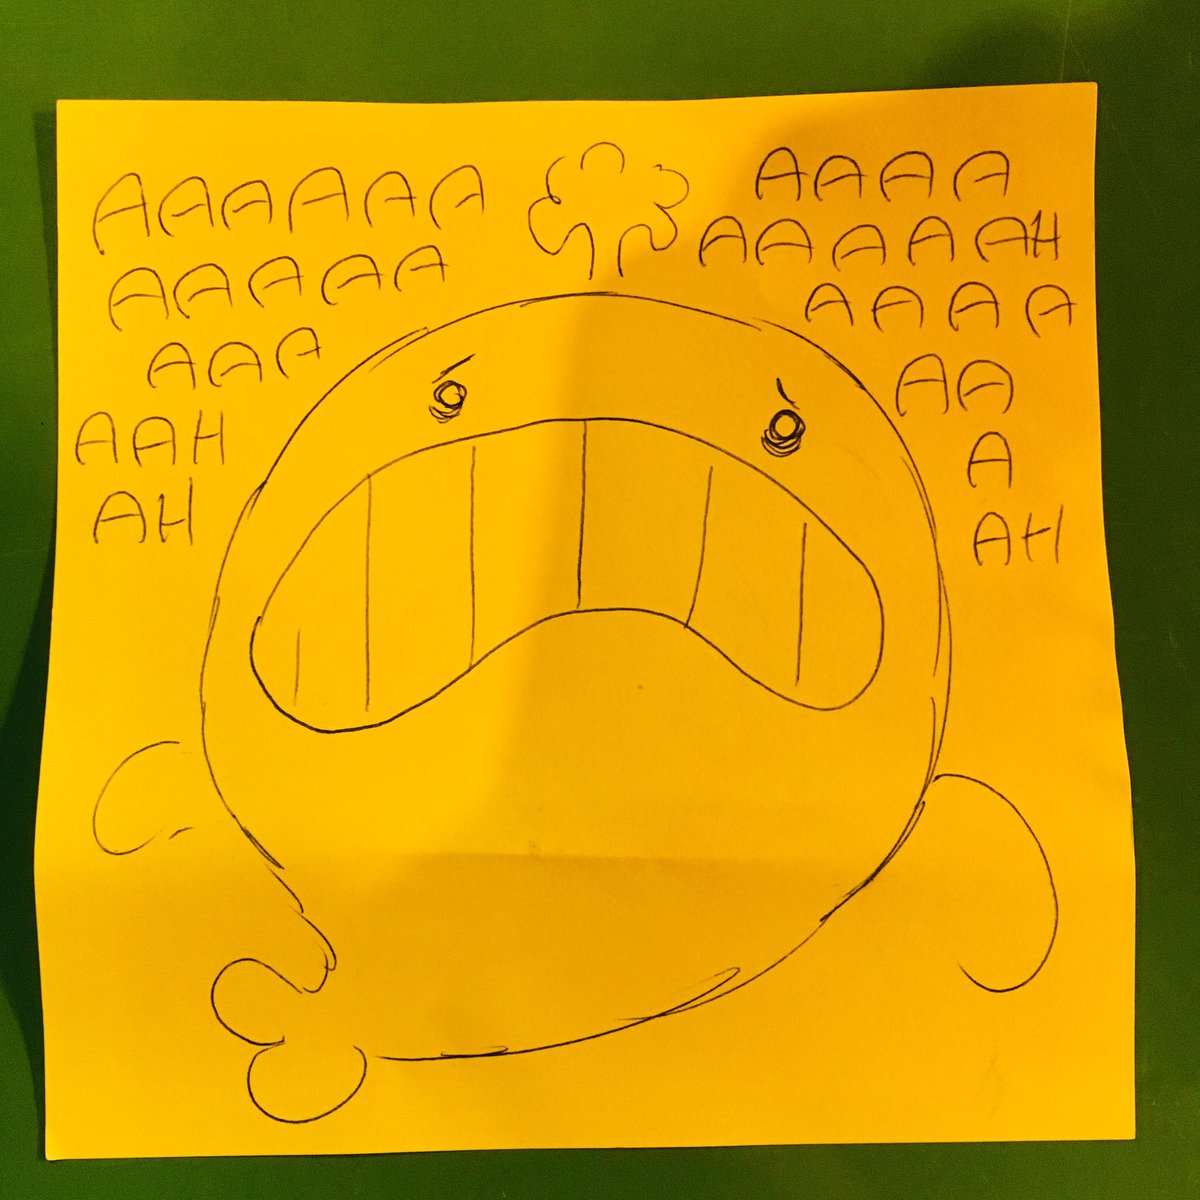 AAAAAA
AAAAA
AAA
AAH
AH
AAAA
AAAAAH
AAAA
AA
A
AH